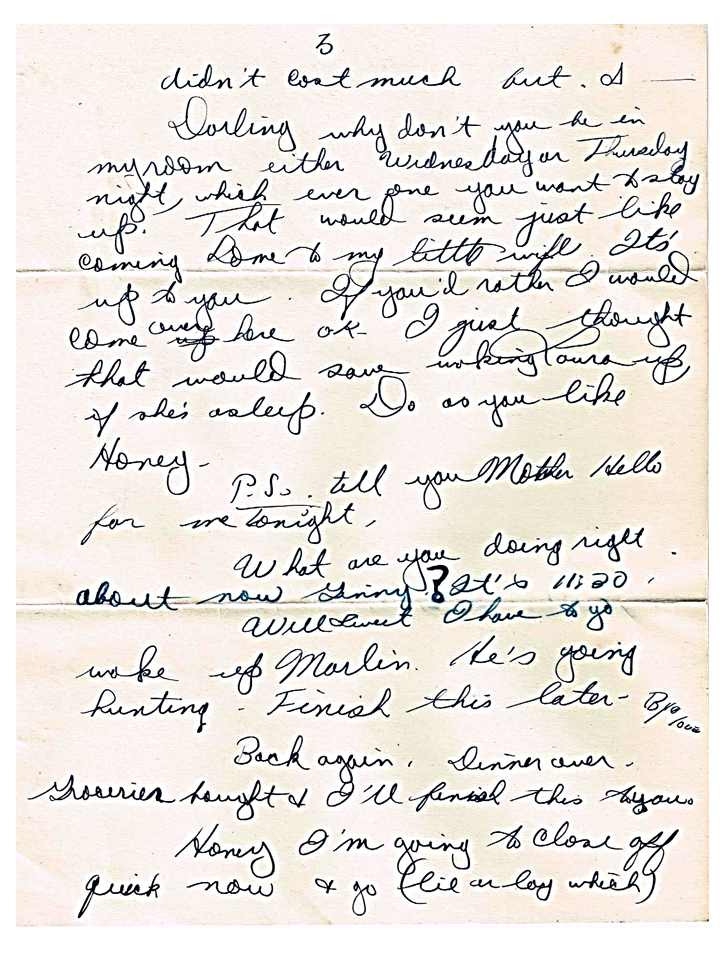 3
didn't cost much but. I —
Darling why don't you be in
my room either Wednesday or Thursday
night, which ever one you want to stay
up. That would seem just like
coming home to my little wife. It's
up to you. If you'd rather I would
come over here ok I just thought
that would save waking Laura up
if she's asleep. Do as you like
Honey-
P.S. tell you Mother Hello
for me tonight,
What are you doing right
about now Ginny? It's 11:20.
Well Sweet I have to go
wake up Marlin. He's going
hunting - Finish this later- Bye love
Back again. Dinner over.
Groceries bought & I'll finish this to you.
Honey I'm going to close off
quick now & go (lie or lay which)